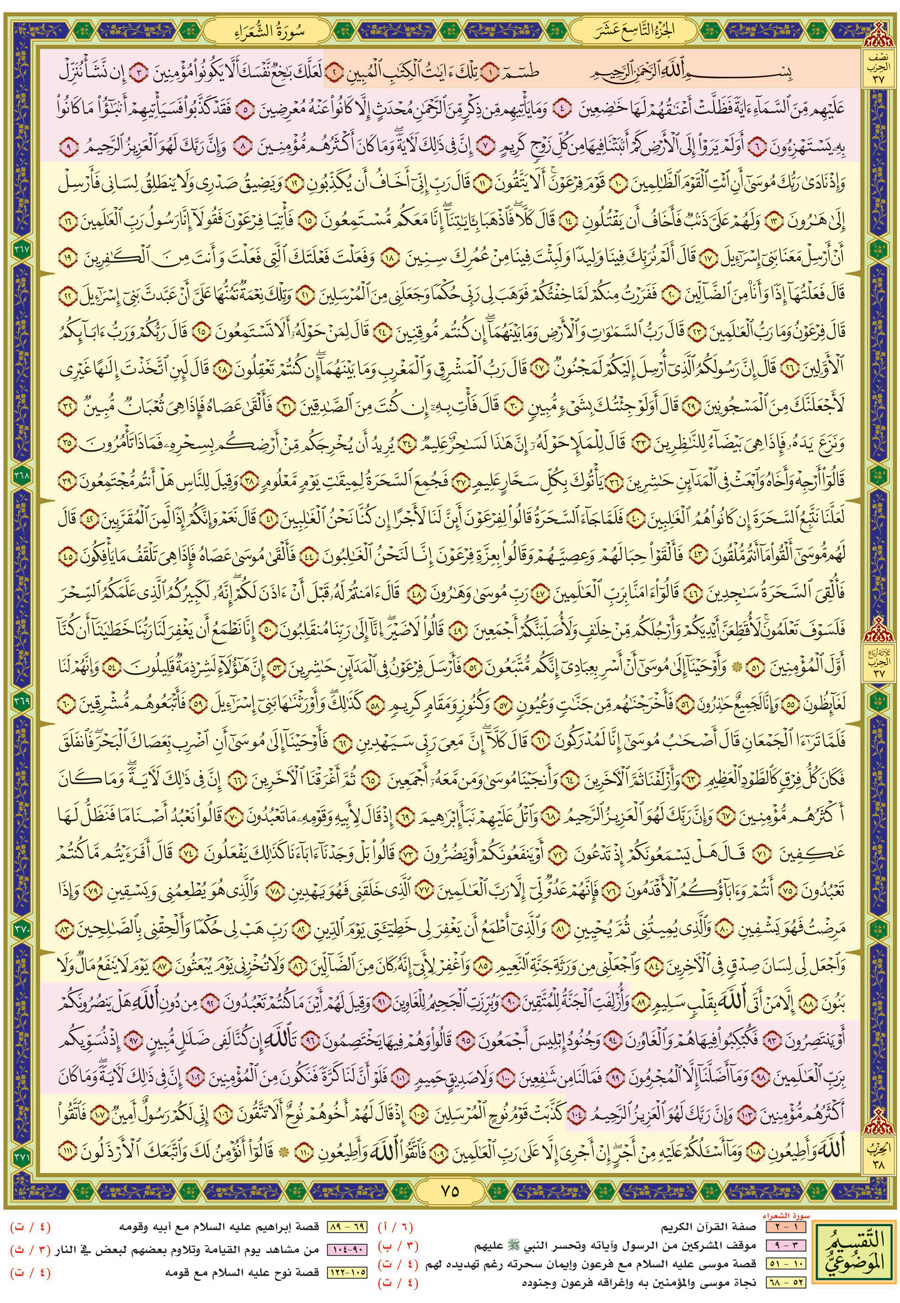 الجزء التاسع عشر
سورة الشعراء
بسم الله الرحمن الرحيم طسٓمٓ ١ تلك ءايات الكتاب المبين ٢ لعلك باخع نفسك ألا يكونوا مؤمنين ٣ إن نشأ ننزل
عليهم من السماء ءاية فظلت أعناقهم لها خاضعين ٤ وما يأتيهم من ذكر من الرحمن محدث إلا كانوا عنه معرضين ٥ فقد كذبوا فسيأتيهم أنباؤا ما كانوا
به يستهزءون ٦ أولم يروا إلى الأرض كم أنبتنا فيها من كل زوج كريم ٧ إن في ذلك لآية وما كان أكثرهم مؤمنين ٨ وإن ربك لهو العزيز الرحيم ٩
وإذ نادى ربك موسى أن ائت القوم الظالمين ١٠ قوم فرعون ألا يتقون ١١ قال رب إني أخاف أن يكذبون ١٢ ويضيق صدري ولا ينطلق لساني فأرسل
إلى هارون ١٣ ولهم علي ذنب فأخاف أن يقتلون ١٤ قال كلا فاذهبا بآياتنا إنا معكم مستمعون ١٥ فأتيا فرعون فقولا إنا رسول رب العالمين ١٦
أن أرسل معنا بني إسراءيل ١٧ قال ألم نربك فينا وليدا ولبثت فينا من عمرك سنين ١٨ وفعلت فعلتك التي فعلت وأنت من الكافرين ١٩
قال فعلتها إذا وأنا من الضالين ٢٠ ففررت منكم لما خفتكم فوهب لي ربي حكما وجعلني من المرسلين ٢١ وتلك نعمة تمنها علي أن عبدت بني إسراءيل ٢٢
قال فرعون وما رب العالمين ٢٣ قال رب السماوات والأرض وما بينهما إن كنتم موقنين ٢٤ قال لمن حوله ألا تستمعون ٢٥ قال ربكم ورب ءابائكم
الأولين ٢٦ قال إن رسولكم الذي أرسل إليكم لمجنون ٢٧ قال رب المشرق والمغرب وما بينهما إن كنتم تعقلون ٢٨ قال لئن اتخذت إلها غيري
لأجعلنك من المسجونين ٢٩ قال أولو جئتك بشيء مبين ٣٠ قال فأت به إن كنت من الصادقين ٣١ فألقى عصاه فإذا هي ثعبان مبين ٣٢
ونزع يده فإذا هي بيضاء للناظرين ٣٣ قال للملإ حوله إن هذا لساحر عليم ٣٤ يريد أن يخرجكم من أرضكم بسحره فماذا تأمرون ٣٥
قالوا أرجه وأخاه وابعث في المدائن حاشرين ٣٦ يأتوك بكل سحار عليم ٣٧ فجمع السحرة لميقات يوم معلوم ٣٨ وقيل للناس هل أنتم مجتمعون ٣٩
لعلنا نتبع السحرة إن كانوا هم الغالبين ٤٠ فلما جاء السحرة قالوا لفرعون أئن لنا لأجرا إن كنا نحن الغالبين ٤١ قال نعم وإنكم إذا لمن المقربين ٤٢ قال
لهم موسى ألقوا ما أنتم ملقون ٤٣ فألقوا حبالهم وعصيهم وقالوا بعزة فرعون إنا لنحن الغالبون ٤٤ فألقى موسى عصاه فإذا هي تلقف ما يأفكون ٤٥
فألقي السحرة ساجدين ٤٦ قالوا ءامنا برب العالمين ٤٧ رب موسى وهارون ٤٨ قال ءامنتم له قبل أن ءاذن لكم إنه لكبيركم الذي علمكم السحر
فلسوف تعلمون لأقطعن أيديكم وأرجلكم من خلاف ولأصلبنكم أجمعين ٤٩ قالوا لا ضير إنا إلى ربنا منقلبون ٥٠ إنا نطمع أن يغفر لنا ربنا خطايانا أن كنا
أول المؤمنين ٥١ ۞ وأوحينا إلى موسى أن أسر بعبادي إنكم متبعون ٥٢ فأرسل فرعون في المدائن حاشرين ٥٣ إن هؤلاء لشرذمة قليلون ٥٤ وإنهم لنا
لغائظون ٥٥ وإنا لجميع حاذرون ٥٦ فأخرجناهم من جنات وعيون ٥٧ وكنوز ومقام كريم ٥٨ كذلك وأورثناها بني إسراءيل ٥٩ فأتبعوهم مشرقين ٦٠
فلما تراءا الجمعان قال أصحاب موسى إنا لمدركون ٦١ قال كلا إن معي ربي سيهدين ٦٢ فأوحينا إلى موسى أن اضرب بعصاك البحر فانفلق
فكان كل فرق كالطود العظيم ٦٣ وأزلفنا ثم الآخرين ٦٤ وأنجينا موسى ومن معه أجمعين ٦٥ ثم أغرقنا الآخرين ٦٦ إن في ذلك لآية وما كان
أكثرهم مؤمنين ٦٧ وإن ربك لهو العزيز الرحيم ٦٨ واتل عليهم نبأ إبراهيم ٦٩ إذ قال لأبيه وقومه ما تعبدون ٧٠ قالوا نعبد أصناما فنظل لها
عاكفين ٧١ قال هل يسمعونكم إذ تدعون ٧٢ أو ينفعونكم أو يضرون ٧٣ قالوا بل وجدنا ءاباءنا كذلك يفعلون ٧٤ قال أفرءيتم ما كنتم
تعبدون ٧٥ أنتم وءاباؤكم الأقدمون ٧٦ فإنهم عدو لي إلا رب العالمين ٧٧ الذي خلقني فهو يهدين ٧٨ والذي هو يطعمني ويسقين ٧٩ وإذا
مرضت فهو يشفين ٨٠ والذي يميتني ثم يحيين ٨١ والذي أطمع أن يغفر لي خطيئتي يوم الدين ٨٢ رب هب لي حكما وألحقني بالصالحين ٨٣
واجعل لي لسان صدق في الآخرين ٨٤ واجعلني من ورثة جنة النعيم ٨٥ واغفر لأبي إنه كان من الضالين ٨٦ ولا تخزني يوم يبعثون ٨٧ يوم لا ينفع مال ولا
بنون ٨٨ إلا من أتى الله بقلب سليم ٨٩ وأزلفت الجنة للمتقين ٩٠ وبرزت الجحيم للغاوين ٩١ وقيل لهم أين ما كنتم تعبدون ٩٢ من دون الله هل ينصرونكم
أو ينتصرون ٩٣ فكبكبوا فيها هم والغاوون ٩٤ وجنود إبليس أجمعون ٩٥ قالوا وهم فيها يختصمون ٩٦ تالله إن كنا لفي ضلال مبين ٩٧ إذ نسويكم
برب العالمين ٩٨ وما أضلنا إلا المجرمون ٩٩ فما لنا من شافعين ١٠٠ ولا صديق حميم ١٠١ فلو أن لنا كرة فنكون من المؤمنين ١٠٢ إن في ذلك لآية وما كان
أكثرهم مؤمنين ١٠٣ وإن ربك لهو العزيز الرحيم ١٠٤ كذبت قوم نوح المرسلين ١٠٥ إذ قال لهم أخوهم نوح ألا تتقون ١٠٦ إني لكم رسول أمين ١٠٧ فاتقوا
الله وأطيعون ١٠٨ وما أسألكم عليه من أجر إن أجري إلا على رب العالمين ١٠٩ فاتقوا الله وأطيعون ١١٠ ۞ قالوا أنؤمن لك واتبعك الأرذلون ١١١
نصف الحزب ٣٧
ثلاثة أرباع الحزب ٣٧
الحزب ٣٨
٣٦٧
٣٦٨
٣٦٩
٣٧٠
٣٧١
٧٥
التقسيم الموضوعي
سورة الشعراء
١ - ٢ صفة القرآن الكريم (٦ / أ)
٣ - ٩ موقف المشركين من الرسول وآياته وتحسر النبي ﷺ عليهم (٣ / ب)
١٠ - ٥١ قصة موسى عليه السلام مع فرعون وإيمان سحرته رغم تهديده لهم (٤ / ت)
٥٢ - ٦٨ نجاة موسى والمؤمنين به وإغراقه فرعون وجنوده (٤ / ت)
٦٩ - ٨٩ قصة إبراهيم عليه السلام مع أبيه وقومه (٤ / ت)
٩٠-١٠٤ من مشاهد يوم القيامة وتلاوم بعضهم لبعض في النار (٣ / ث)
١٠٥-١٢٢ قصة نوح عليه السلام مع قومه (٤ / ت)